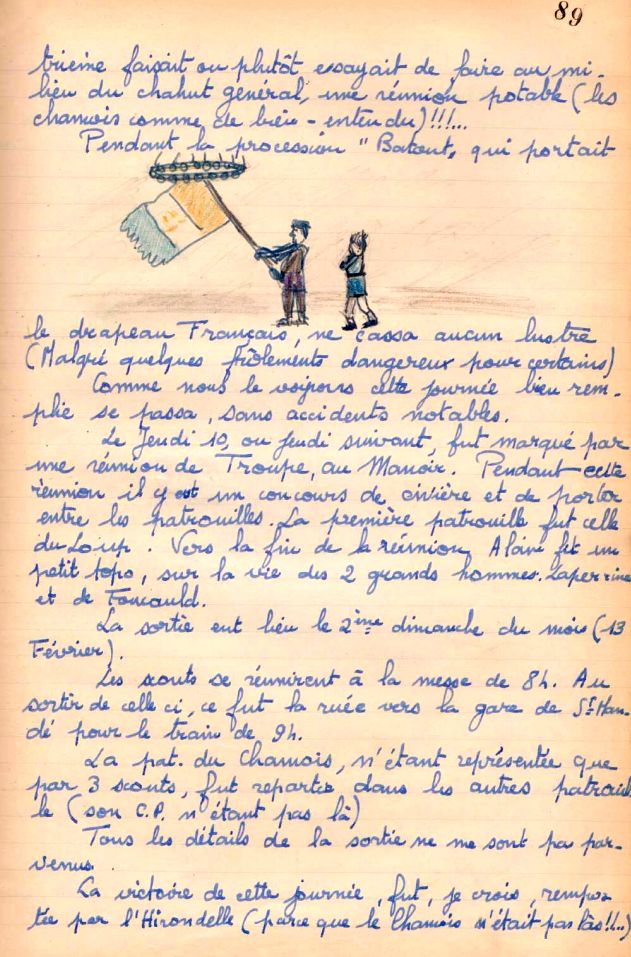 89
trième faisait ou plutôt essayait de faire au mi-
lieu du chahut général, une réunion potable (les
chamois comme de bien-entendu)!!!...
Pendant la procession "Batout" qui portait
le drapeau Français, ne cassa aucun lustre
(Malgré quelques frôlements dangereux pour certains)
Comme nous le voyons cette journée bien rem-
plie se passa, sans accidents notables.
Le Jeudi 10, ou Jeudi suivant, fut marqué par
une réunion de Troupe, au Manoir. Pendant cette
réunion il y eut un concours de civière et de porter
entre les patrouilles. La première patrouille fut celle
du Loup. Vers la fin de la réunion Alain fit un
petit topo, sur la vie des 2 grands hommes. Laperrine
et de Foucauld.
La sortie eut lieu le 2ème dimanche du mois (13
Février).
Les scouts se réunirent à la messe de 8h. Au
sortir de celle ci, ce fut la ruée vers la gare de St Man-
dé pour le train de 9h.
La pat. du Chamois, n'étant représentée que
par 3 scouts, fut repartie dans les autres patrouil
le (son C.P. n'étant pas là)
Tous les détails de la sortie ne me sont pas par-
venus.
La victoire de cette journée, fut, je crois, rempor
tée par l'Hirondelle (parce que le Chamois n'était pas là!!...)